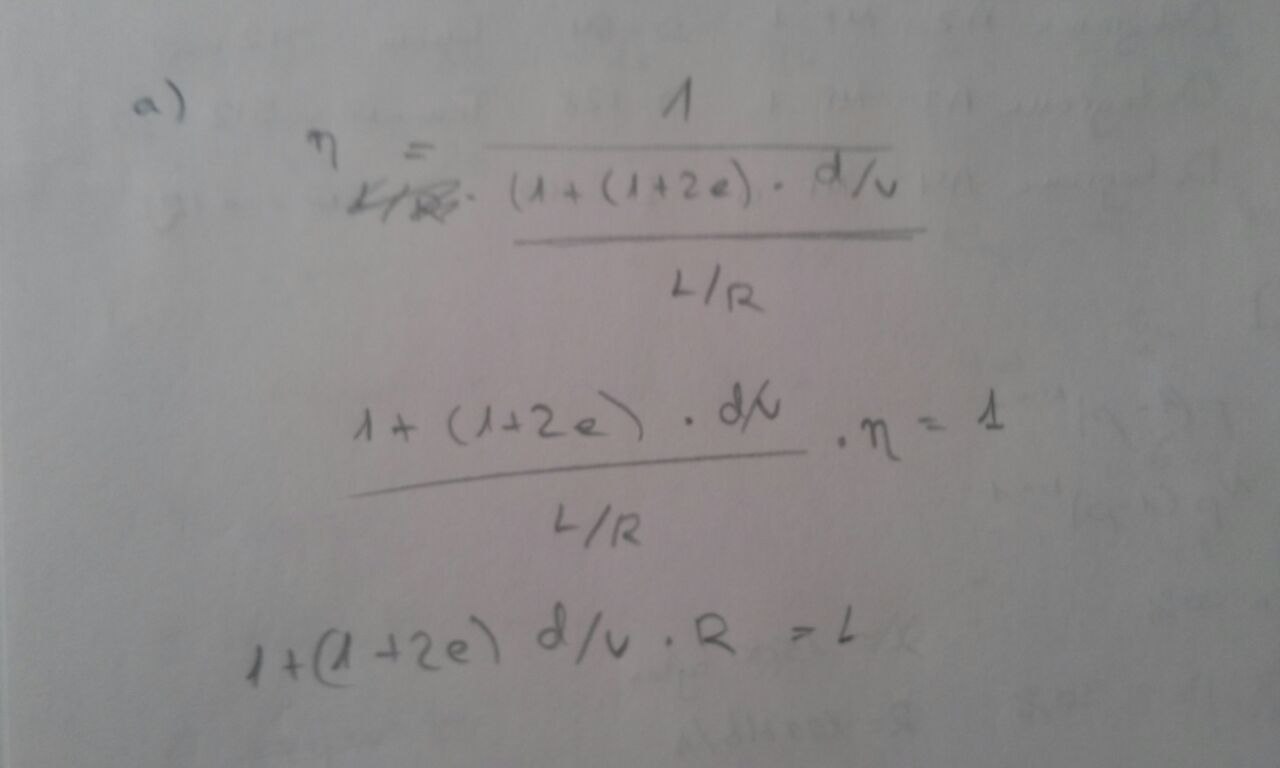 a)
η = 1
(1+(1+2e) · d/v
L/R
1+(1+2e) · d/v · η = 1
L/R
1+(1+2e) d/v · R = L